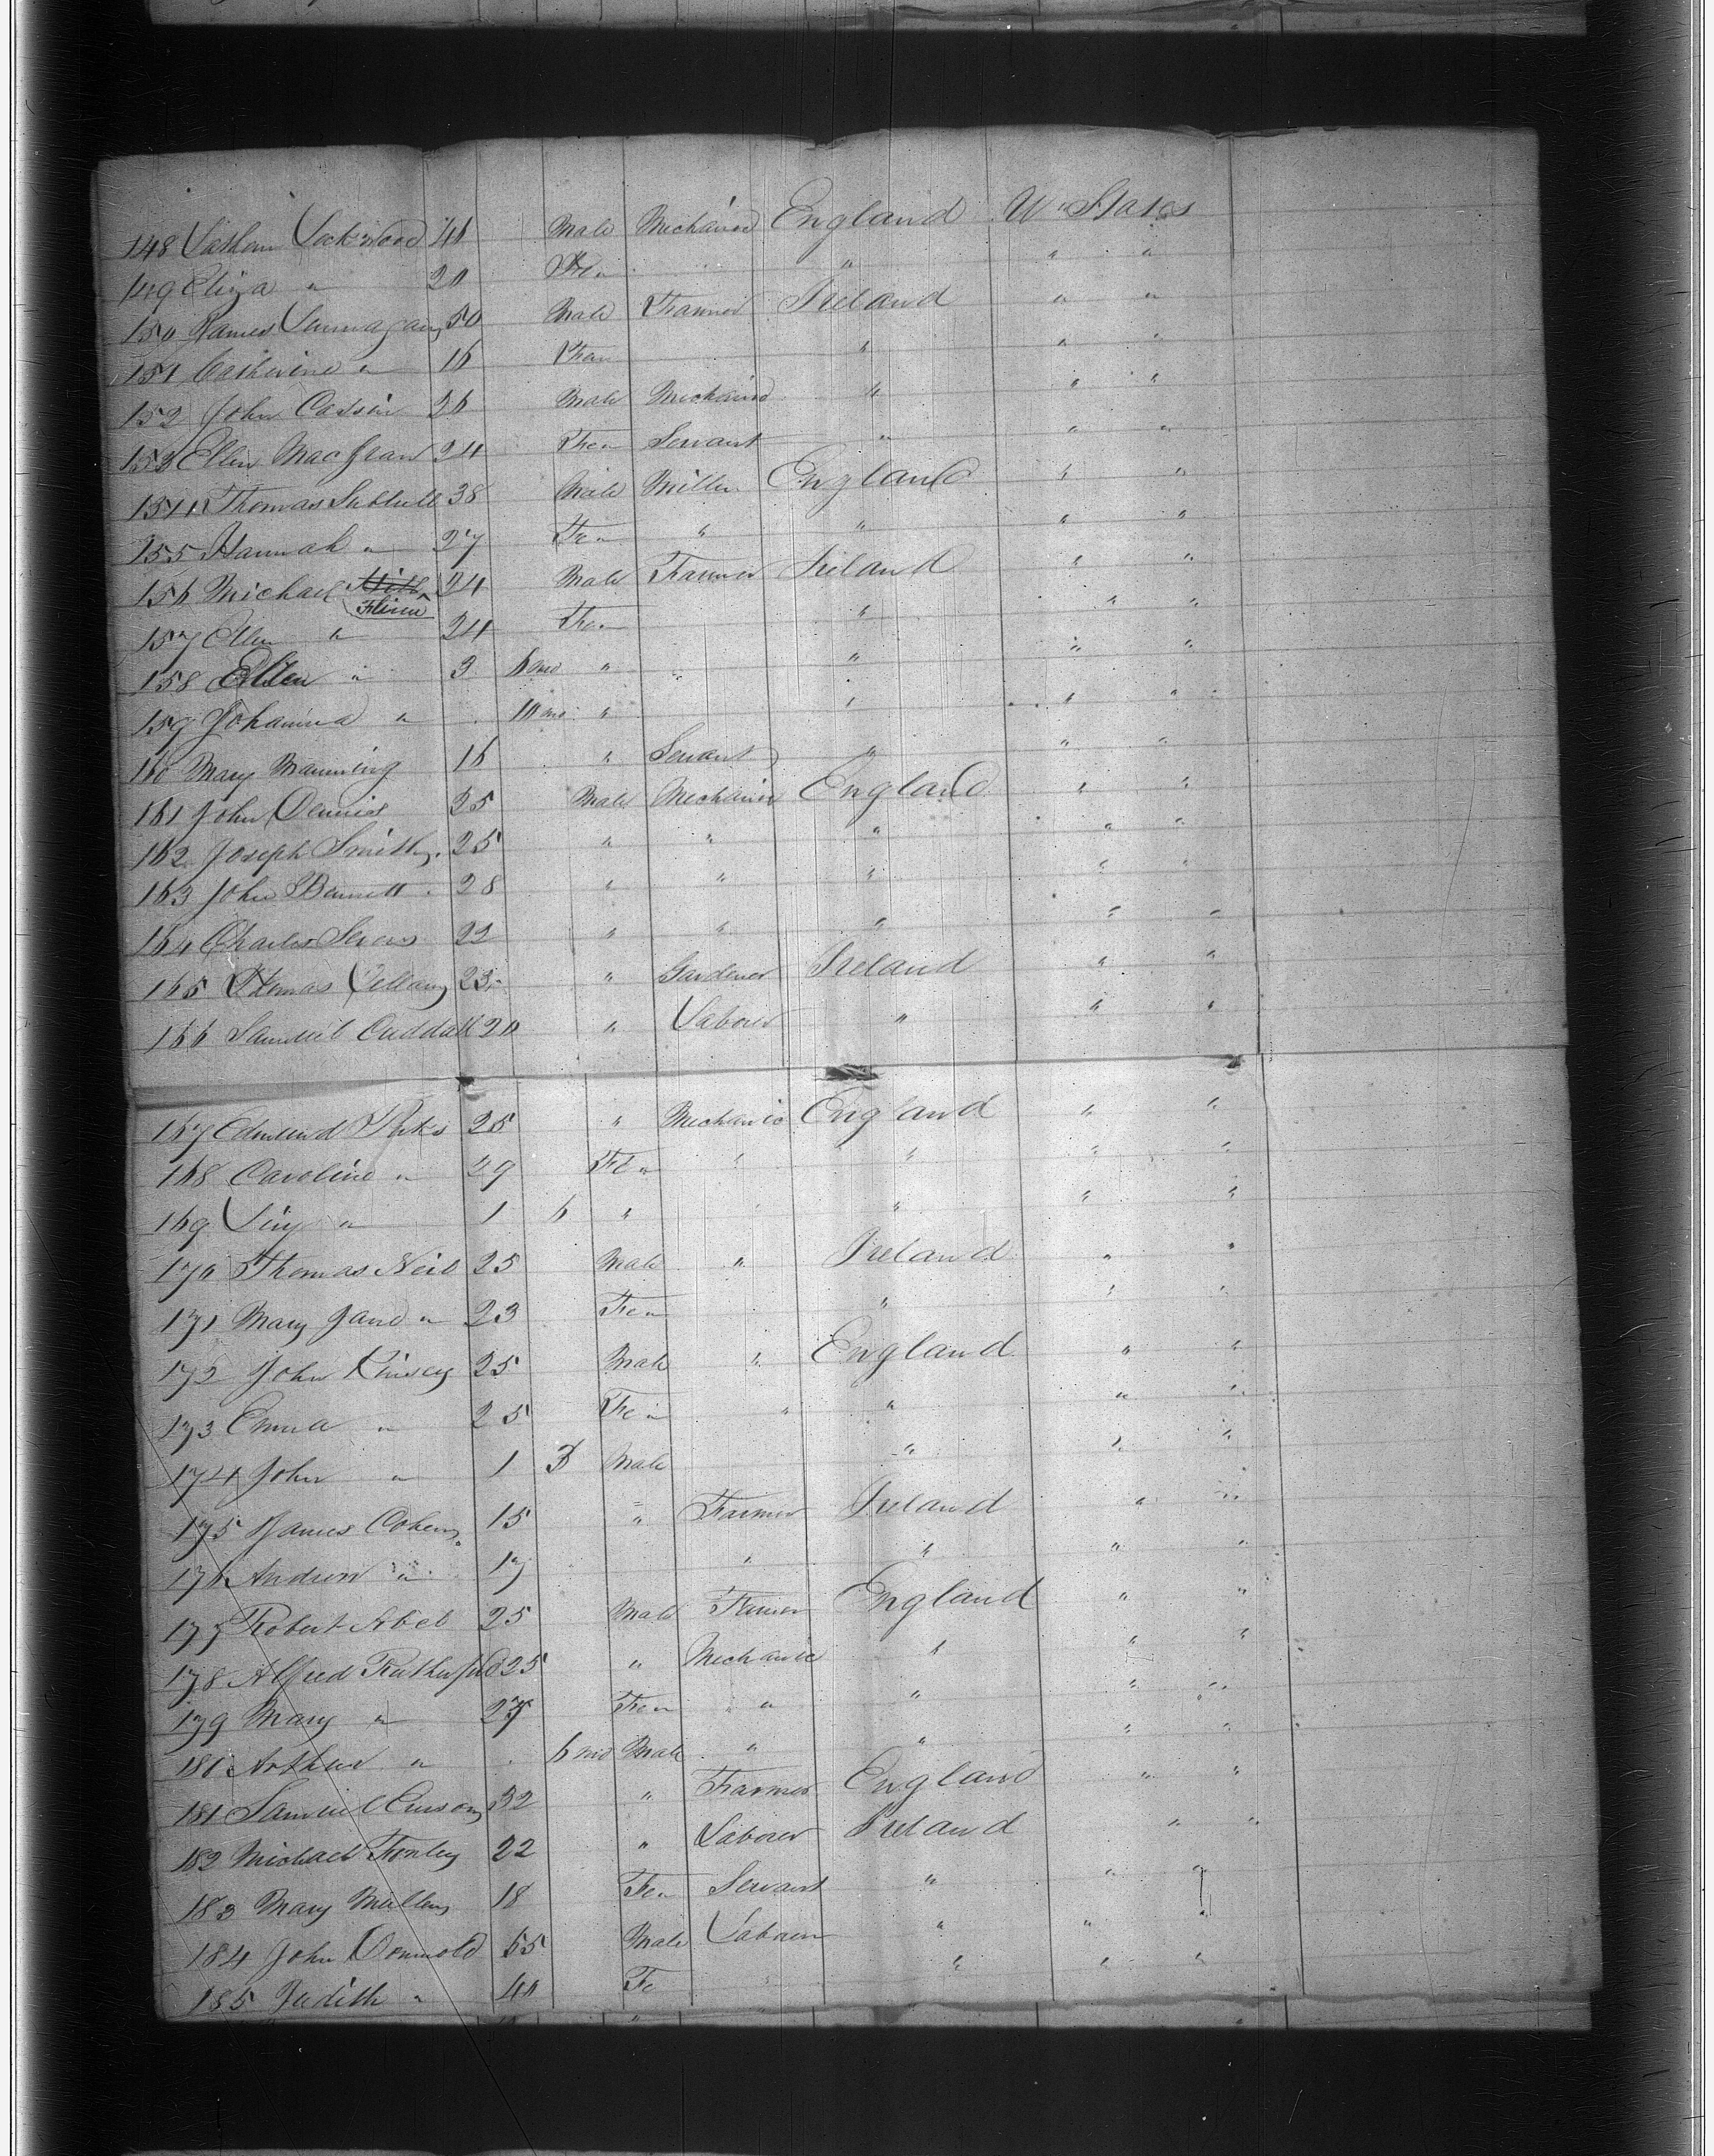 148 Lockwood Male Mechanic England U" States
149 Eliza " 20 Fe" " " "
150 James 50 Male Farmer Ireland " "
151 Catherine " 16 Fem " " "
152 John Cassin 26 Male Mechanic " " "
153 Ellen 24 Fem Servant " " "
154 Thomas 38 Male Miller England " "
155 Hannah " 27 Fe" " " " "
156 Michael Male Farmer Ireland " "
157 Ellen " 24 Fe" " " "
158 Ellen " 3 6 mo " " " "
159 Johanna " 10 mo " " " "
160 Mary Manning 16 " Servant " " "
161 John Dennis 25 Male Mechanic England " "
162 Joseph Smith 25 " " " " "
163 John Bennett 28 " " " " "
164 Charles 22 " " " " "
165 Thomas 23 " Gardener Ireland " "
166 Samuel 20 " Laborer " " "
167 Edmund 25 " Mechanic England " "
168 Caroline " 29 Fe" " " " "
169 " 1 6 " " " " "
170 Thomas Neil 25 Male " Ireland " "
171 Mary Jane " 23 Fe" " " "
172 John Kinsey 25 Male " England " "
173 Emma " 25 Fe" " " " "
174 John " 1 3 Male " " "
175 James Cohen 15 " Farmer Ireland " "
176 Andrew " 17 " " " "
177 Robert Abel 25 Male Farmer England " "
178 Alfred Rutherford 25 " Mechanic " " "
179 Mary " Fe" " " " "
180 Arthur " 6 mo Male " " " "
181 Samuel 32 " Farmer England " "
182 Michael 22 " Laborer Ireland " "
183 Mary Mullen 18 Fe" Servant " " "
184 John 55 Male Laborer " " "
185 Judith " 40 Fe " " "